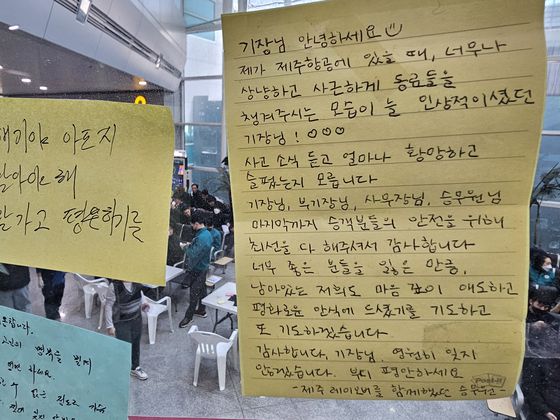 기장님 안녕하세요
제가 제주항공에 있을 때, 너무나
상냥하고 사근하게 동료들을
챙겨주시는 모습이 늘 인상적이셨던
기장님! ♡♡♡
사고 소식 듣고 얼마나 황망하고
슬펐는지 모릅니다
기장님, 부기장님, 사무장님, 승무원님
마지막까지 승객분들의 안전을 위해
최선을 다 해주셔서 감사합니다
너무 좋은 분들을 잃은 만큼,
남아있는 저희도 마음 깊이 애도하고
평화로운 안식에 드셨기를 기도하고
또 기도하겠습니다
감사합니다. 기장님. 영원히 잊지
않겠습니다. 부디 평안하세요
- 제주 레이오버를 함께했던 승무원 -
Post-it
아프지
말아야 해
잘 가고 평온하기를